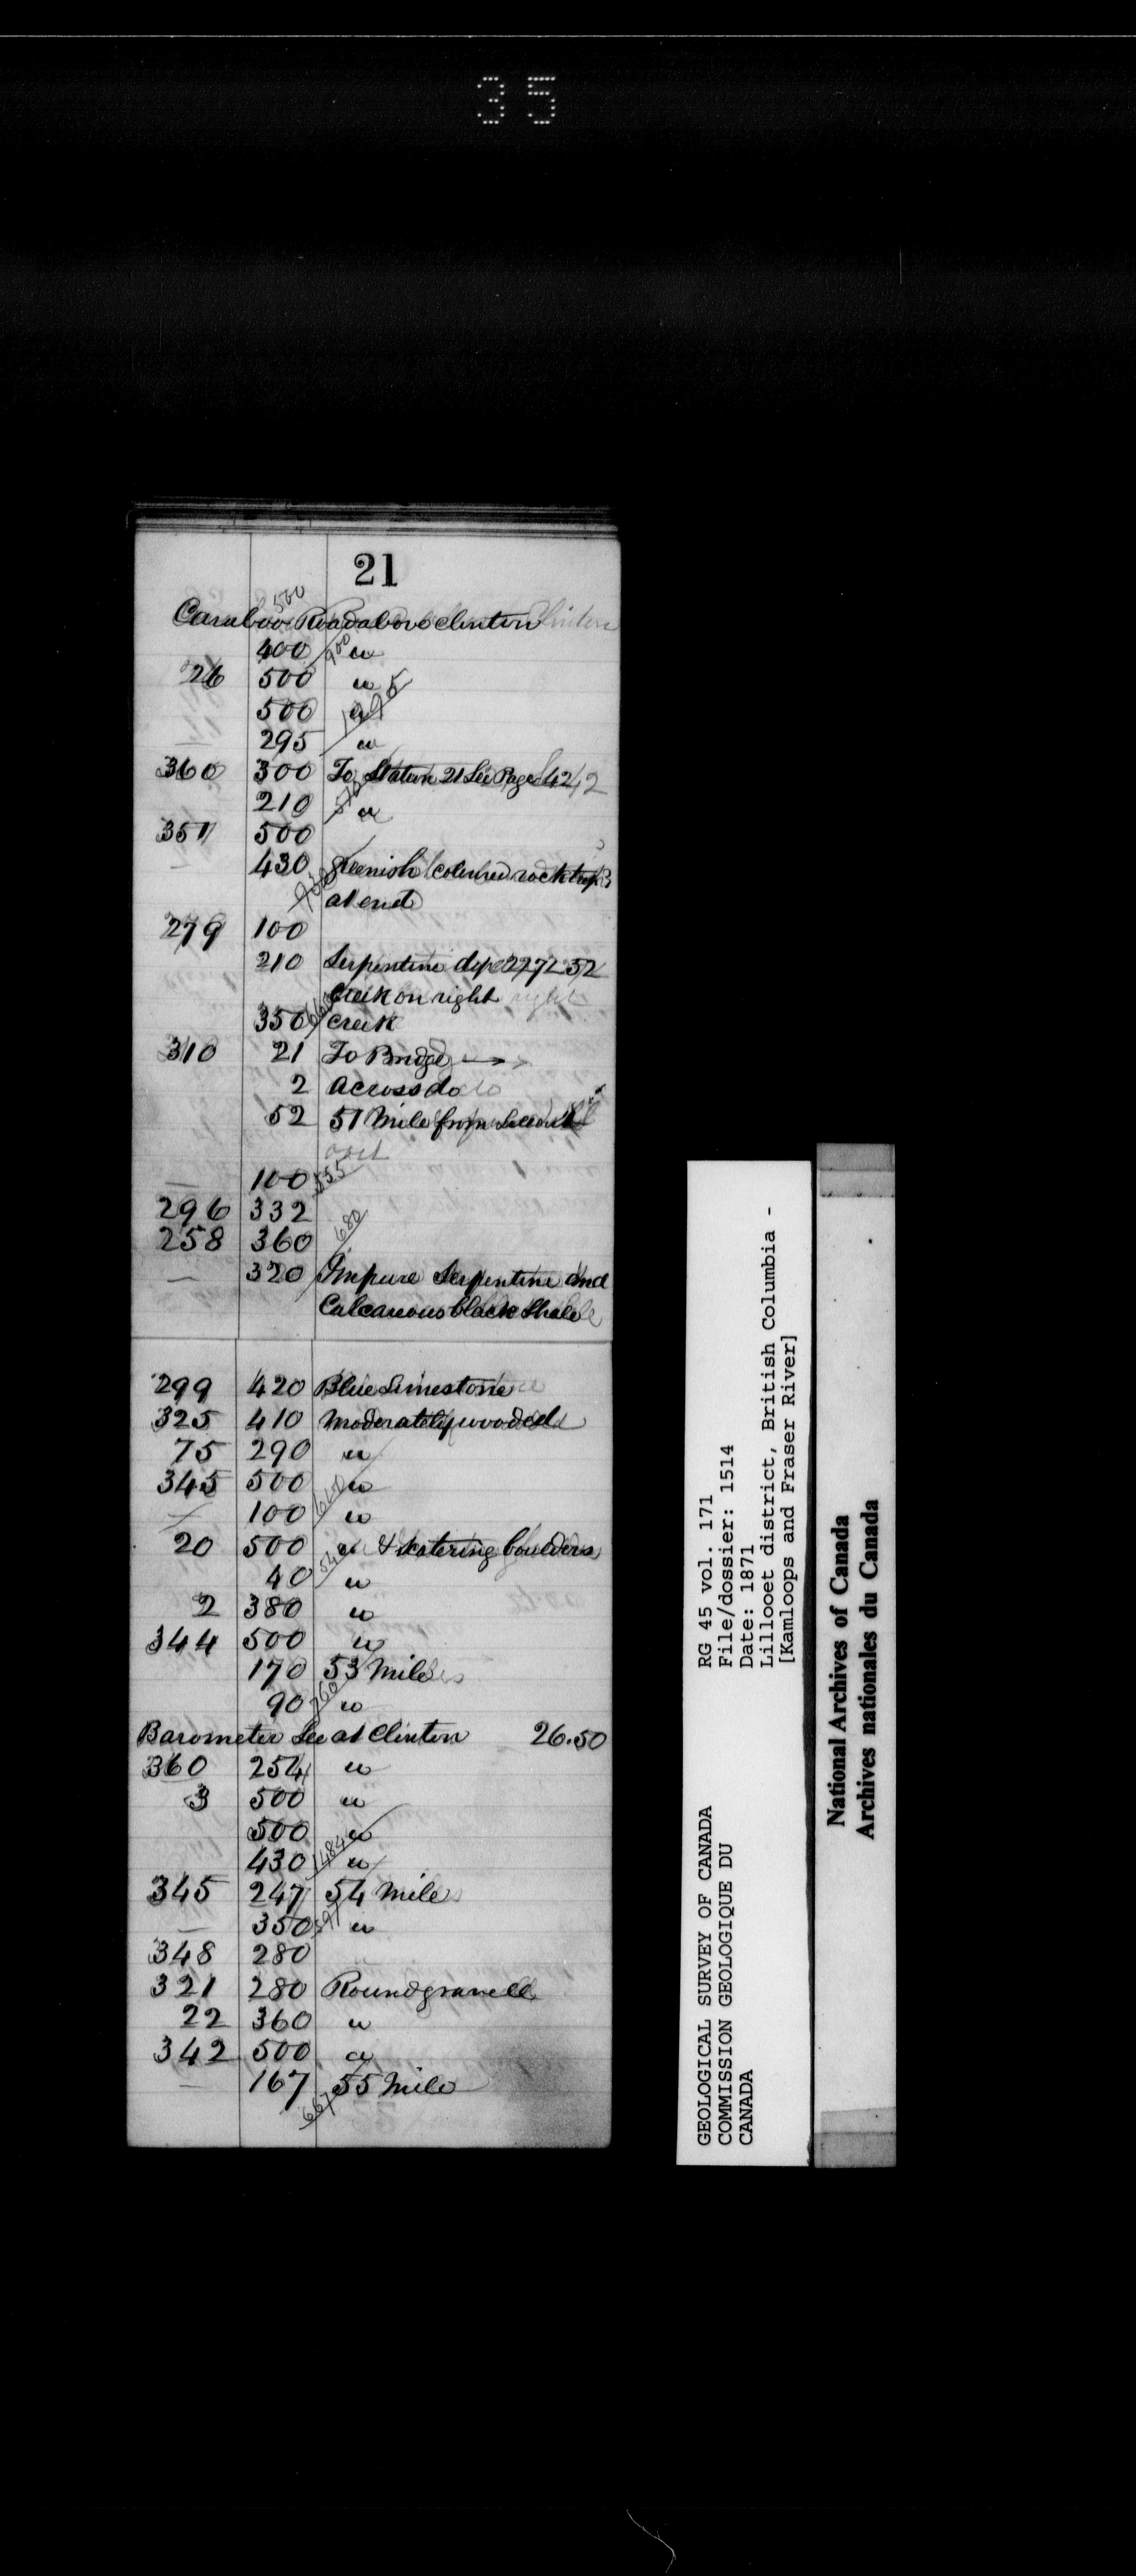 35
21
500
Cariboo Road above Clinton
400 900 "
26 500 "
500 " 1295
295 "
360 300 To Station 21 See Page 42
210 510 "
351 500
— 430 930 greenish coloured rock trap
at end
279 100
210 Serpentine dip 227 L 52
Creek on right
350 660 Creek
310 21 To Bridge →
2 across do
52 51 Mile from
— 100 555
296 332
258 360 680
— 320 Impure Serpentine and
Calcareous black Shale
299 420 Blue Limestone
325 410 Moderately wooded
75 290 "
345 500 "
— 100 600 "
20 500 " & scatering boulders
40 540 "
2 380 "
344 500 "
170 53 Mile
90 760 "
Barometer See at Clinton 26.50
360 254 "
3 500 "
500 "
430 1484 "
345 247 54 Mile
— 350 597 "
348 280
321 280 Round gravell
22 360 "
342 500 "
— 167 667 55 Mile
GEOLOGICAL SURVEY OF CANADA
COMMISSION GEOLOGIQUE DU
CANADA
RG 45 vol. 171
File/dossier: 1514
Date: 1871
Lillooet district, British Columbia -
[Kamloops and Fraser River]
National Archives of Canada
Archives nationales du Canada